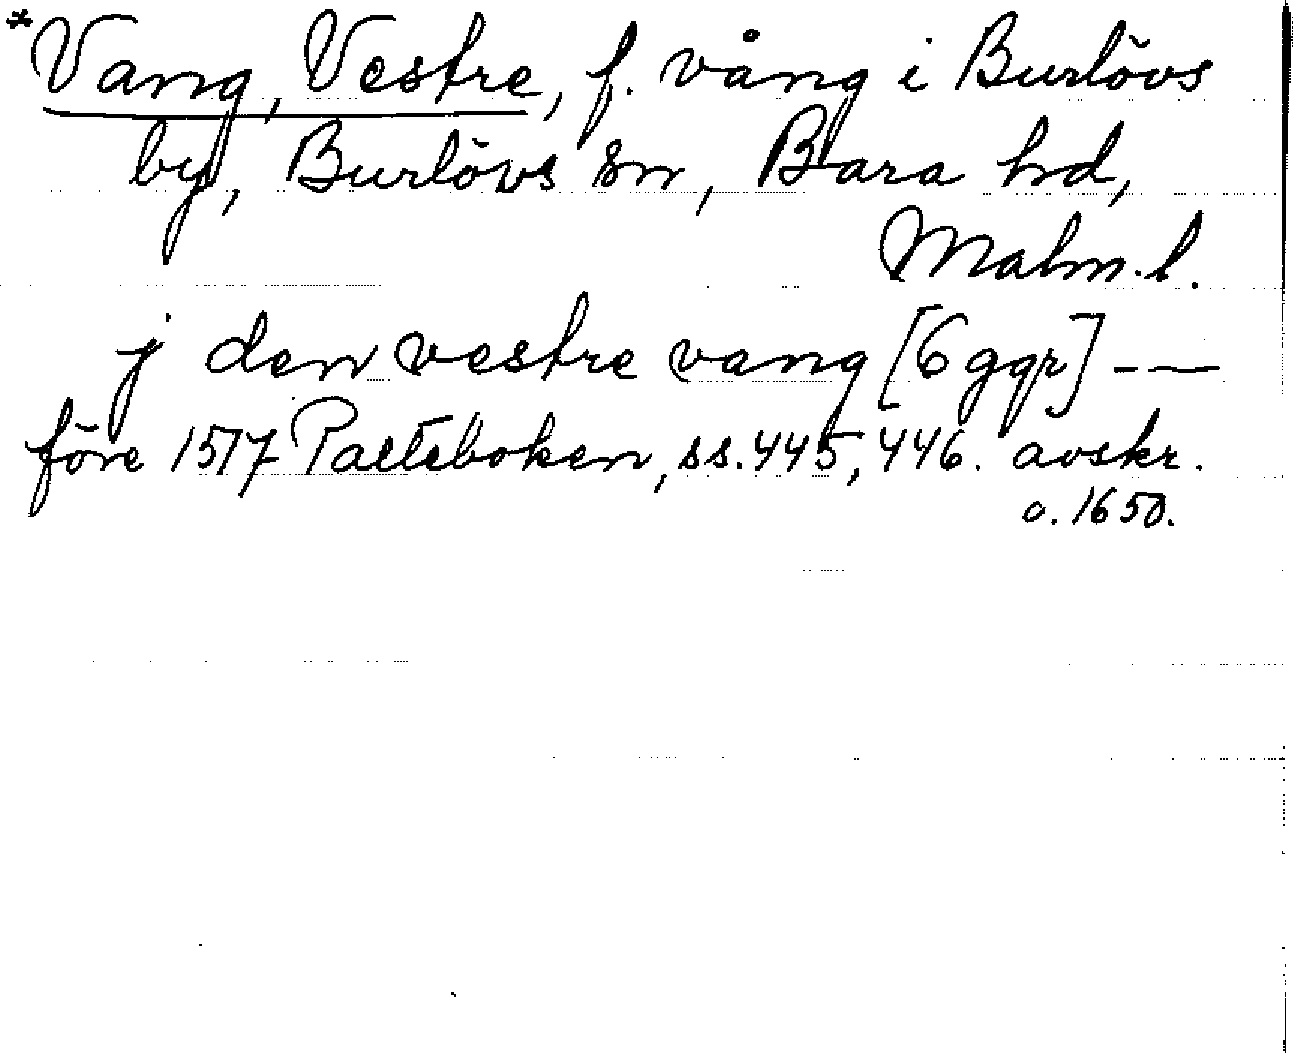 *Vang, Vestre, f. vång i Burlövs
by, Burlövs sn, Bara hd,
Malm.l.
j den vestre vang [6 ggr] -—
före 1517 Palteboken, ss. 445, 446. avskr.
o. 1650.